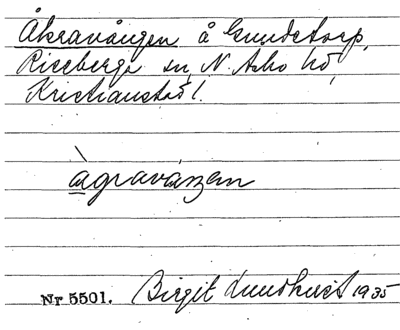 Åkravången å Gundstorp,
Riseberga sn, N. Åsbo hd,
Kristianstads l.
àgraváŋen
Nr 5501. Birgit Lundkvist 1935